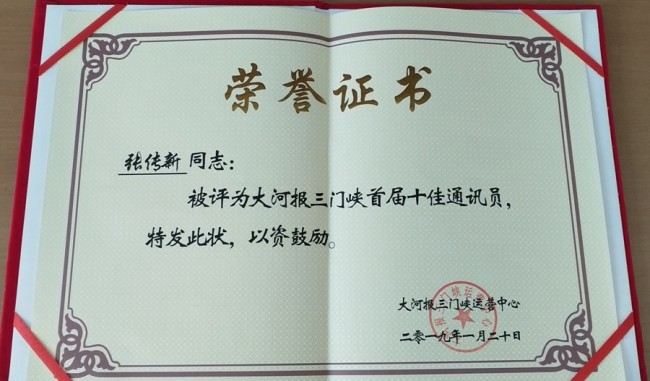 荣誉证书
张传新 同志：
被评为大河报三门峡首届十佳通讯员，
特发此状，以资鼓励。
大河报三门峡运营中心
二零一九年一月二十日